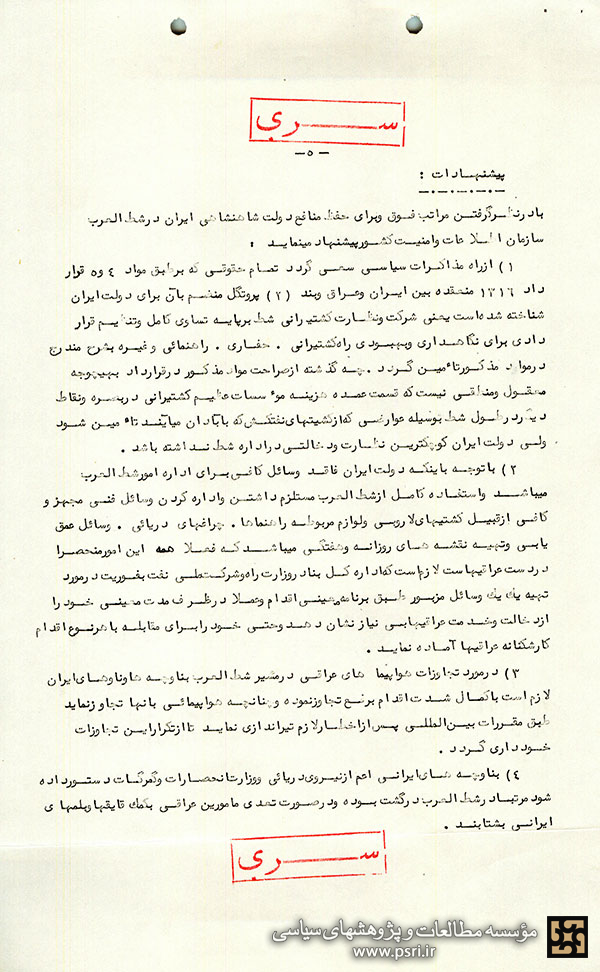 سری
-۵-
پیشنهادات :
بادرنظرگرفتن مراتب فوق وبرای حفظ منافع دولت شاهنشاهی ایران درشط العرب
سازمان اطلاعات وامنیت کشورپیشنهاد مینماید :
۱) ازراه مذاکرات سیاسی سعی گردد تمام حقوقی که برطبق مواد ۴ و۵ قرار
داد ۱۳۱۶ منعقده بین ایران وعراق وبند (۲) پروتکل منضم بآن برای دولت ایران
شناخته شده‌است یعنی شرکت ونظارت کشتیرانی شط برپایه تساوی کامل وتنظیم قرار
دادی برای نگاهداری وبهبودی راه‌کشتیرانی ، حفاری ، راهنمائی وغیره بشرح مندرج
درمواد مذکورتاٴمین گردد . چه گذشته ازصراحت مواد مذکور درقرارداد بهیچوجه
معقول ومنطقی نیست که قسمت عمده هزینه موٴسسات عظیم کشتیرانی دربصره ونقاط
دیگردرطول شط بوسیله عوارضی که‌ازکشتیهای‌نفتکش‌که بآبادان میآیند تاٴمین شود
ولی دولت ایران کوچکترین نظارت ودخالتی دراداره شط نداشته باشد .
۲) باتوجه باینکه دولت ایران فاقد وسائل کافی برای اداره امورشط العرب
میباشد واستفاده کامل ازشط العرب مستلزم داشتن واداره کردن وسائل فنی مجهز و
کافی ازقبیل کشتیهای‌لاروبی ولوازم مربوطه راهنماها ، چراغهای دریائی ، وسائل عمق
یابی وتهیه نقشه های روزانه وهفتگی میباشد که فعلا همه این امورمنحصرا
دردست عراقیهاست لازم‌است‌که‌اداره کل بنادروزارت راه‌وشرکت‌ملی نفت بفوریت درمورد
تهیه یک یک وسائل مزبور طبق برنامه‌معینی‌اقدام وعملا درظرف مدت معینی خودرا
ازدخالت وخدمت عراقیهابی نیاز نشان دهد وحتی خودرابرای مقابله باهرنوع‌اقدام
کارشکنانه عراقیها آماده نماید .
۳) درمورد تجاوزات هواپیما های عراقی درمسیر شط العرب بناوچه هاوناوهای‌ایران
لازم است باکمال شدت‌اقدام برفع تجاوزنموده وچنانچه هواپیمائی بآنها تجاوزنماید
طبق مقررات بین‌المللی پس‌ازاخطارلازم تیراندازی نماید تاازتکراراین تجاوزات
خودداری گردد .
۴) بناوچه های‌ایرانی اعم ازنیروی‌دریائی ووزارت‌انحصارات وگمرکات دستورداده
شود مرتبادرشط العرب درگشت بوده ودرصورت تعدی مامورین عراقی بکمک قایقهاوبلمهای
ایرانی بشتابند .
سری
مؤسسه مطالعات و پژوهشهای سیاسی
www.psri.ir